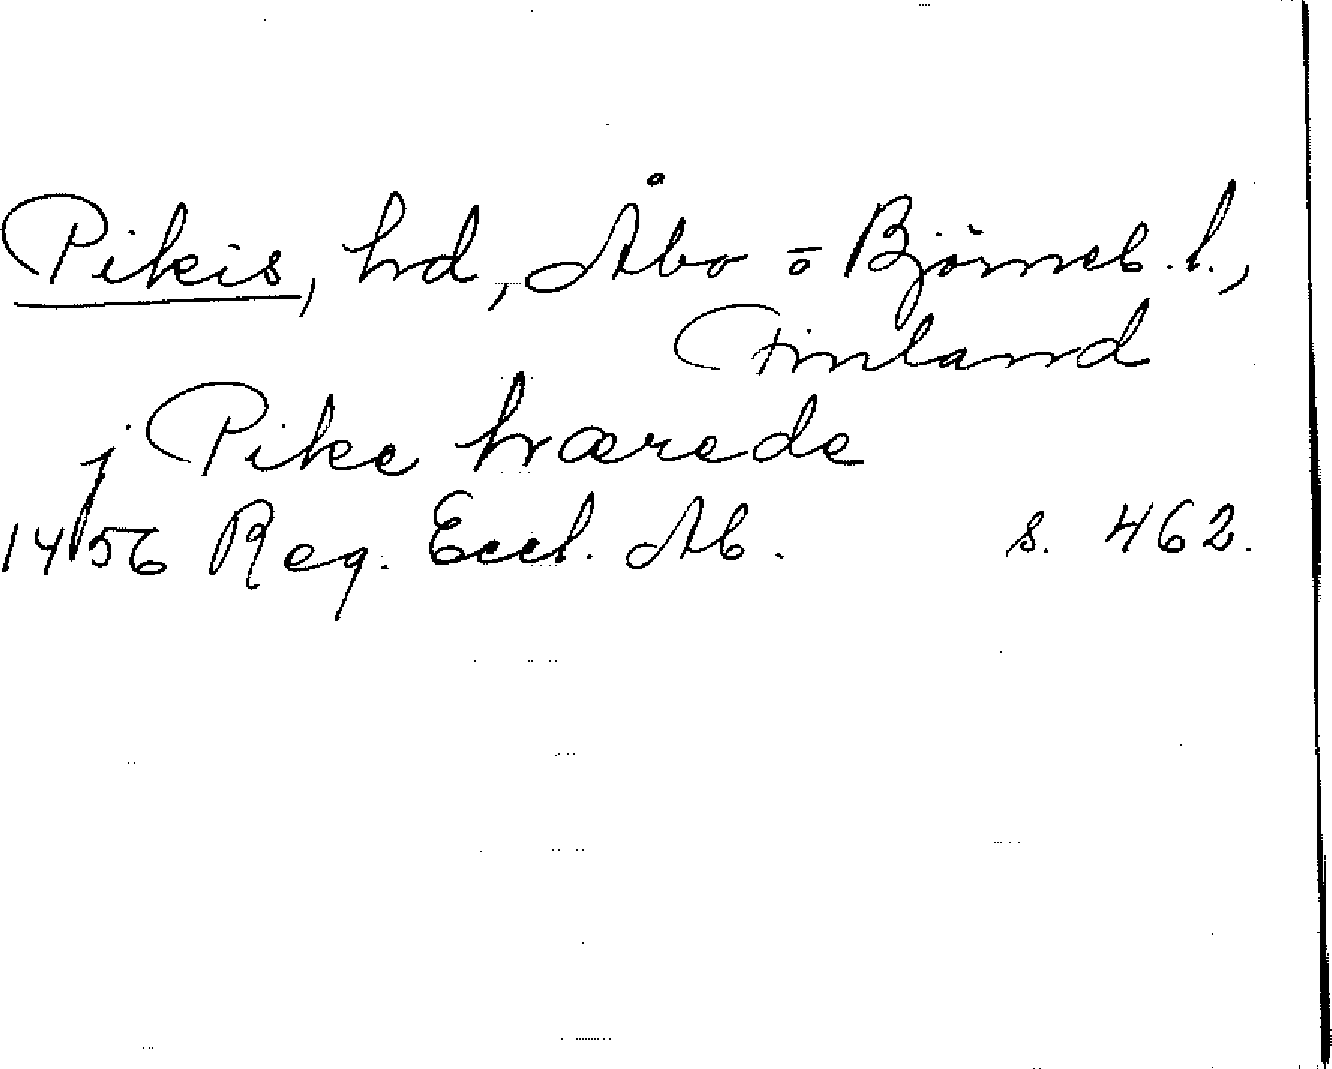 Pikis, hd, Åbo o Björneb. l.,
Finland
j Pike hærede
1456 Reg. Eccl. Ab. s. 462.